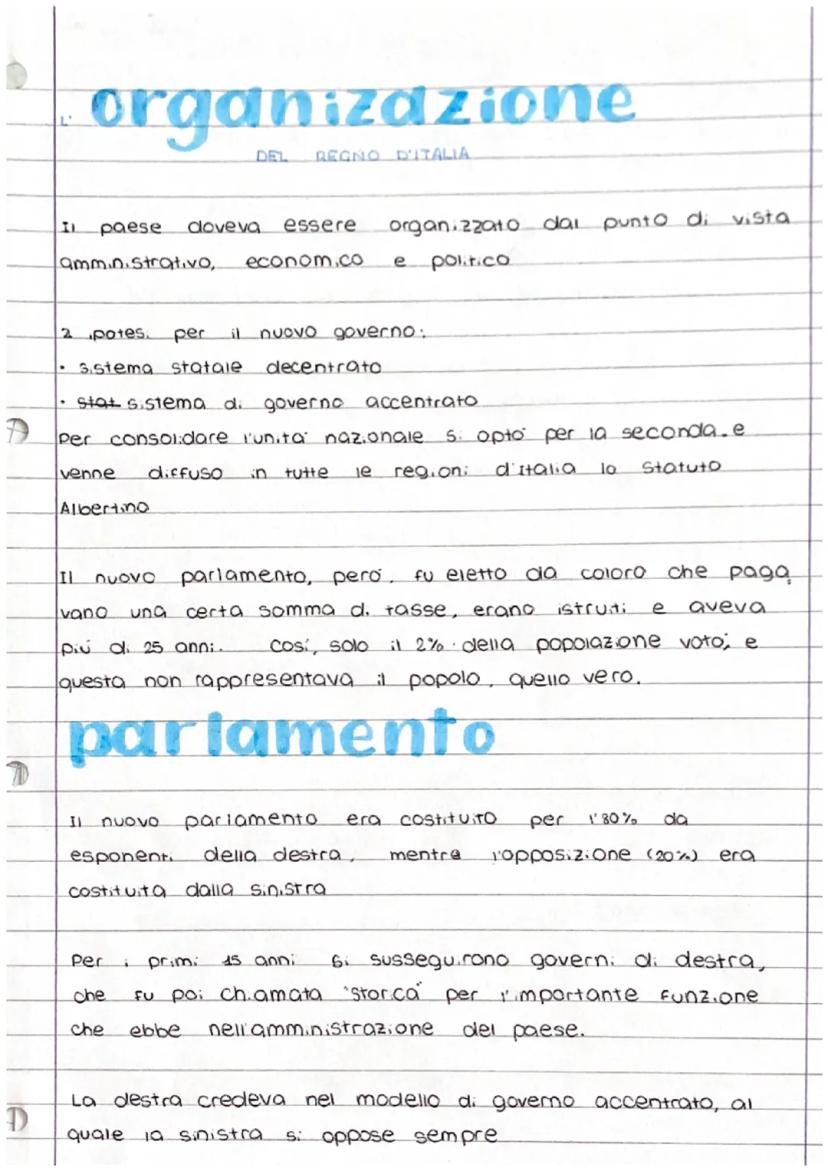 L' organizzazione
DEL REGNO D'ITALIA
Il paese doveva essere organizzato dal punto di vista
amministrativo, economico e politico
2 ipotesi per il nuovo governo:
• sistema statale decentrato
• stat sistema di governo accentrato
Per consolidare l'unità nazionale si optò per la seconda e
venne diffuso in tutte le regioni d'Italia lo Statuto
Albertino
Il nuovo parlamento, però, fu eletto da coloro che paga
vano una certa somma di tasse, erano istruiti e aveva
più di 25 anni. Così, solo il 2% della popolazione votò, e
questa non rappresentava il popolo, quello vero.
parlamento
Il nuovo parlamento era costituito per l'80% da
esponenti della destra, mentre l'opposizione (20%) era
costituita dalla sinistra
Per i primi 15 anni si susseguirono governi di destra,
che fu poi chiamata "storica" per l'importante funzione
che ebbe nell'amministrazione del paese.
La destra credeva nel modello di governo accentrato, al
quale la sinistra si oppose sempre